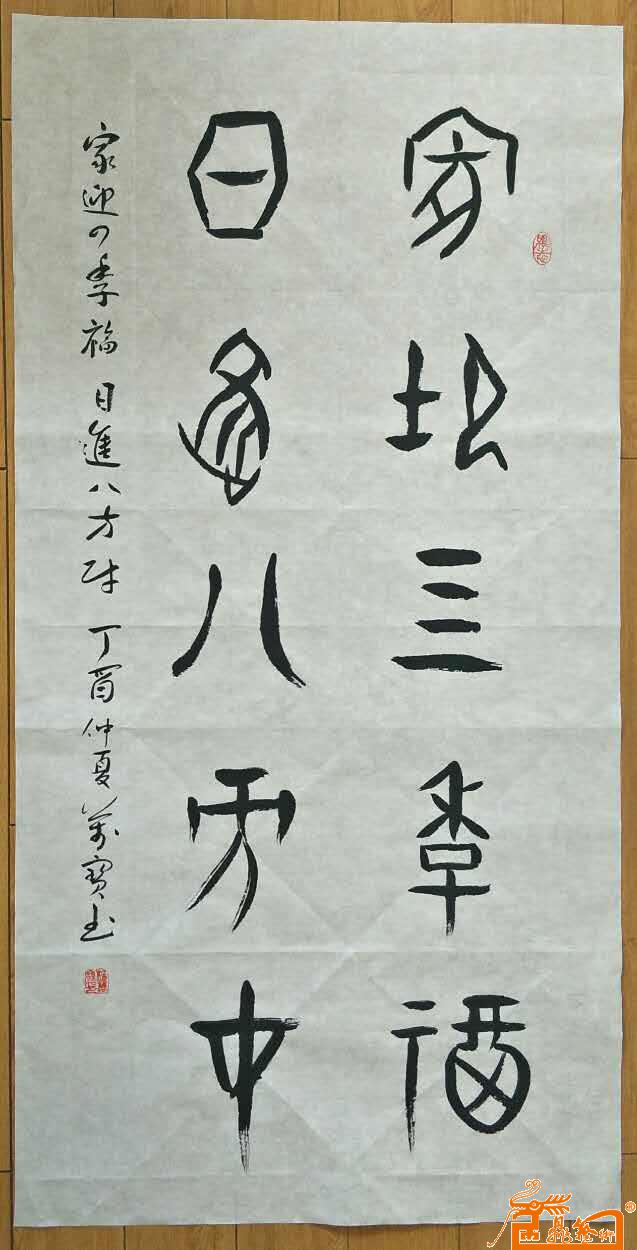 家迎四季福
日進八方才
家迎四季福 日進八方财 丁酉仲夏 萬寶书